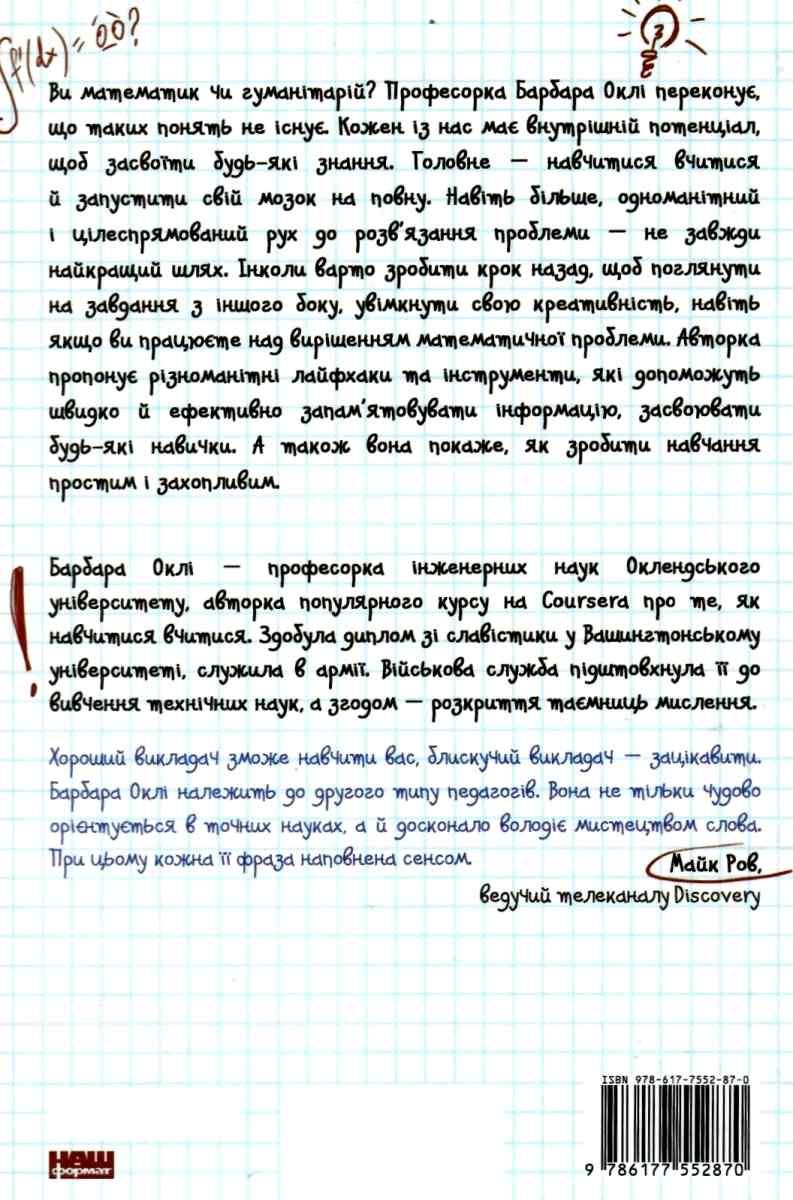 ∫f'(dx) = ∞?
Ви математик чи гуманітарій? Професорка Барбара Оклі переконує,
що таких понять не існує. Кожен із нас має внутрішній потенціал,
щоб засвоїти будь-які знання. Головне — навчитися вчитися
й запустити свій мозок на повну. Навіть більше, одноманітний
і цілеспрямований рух до розв'язання проблеми — не завжди
найкращий шлях. Інколи варто зробити крок назад, щоб поглянути
на завдання з іншого боку, увімкнути свою креативність, навіть
якщо ви працюєте над вирішенням математичної проблеми. Авторка
пропонує різноманітні лайфхаки та інструменти, які допоможуть
швидко й ефективно запам'ятовувати інформацію, засвоювати
будь-які навички. А також вона покаже, як зробити навчання
простим і захопливим.
Барбара Оклі — професорка інженерних наук Оклендського
університету, авторка популярного курсу на Coursera про те, як
навчитися вчитися. Здобула диплом зі славістики у Вашингтонському
університеті, служила в армії. Військова служба підштовхнула її до
вивчення технічних наук, а згодом — розкриття таємниць мислення.
!
Хороший викладач зможе навчити вас, блискучий викладач — зацікавити.
Барбара Оклі належить до другого типу педагогів. Вона не тільки чудово
орієнтується в точних науках, а й досконало володіє мистецтвом слова.
При цьому кожна її фраза наповнена сенсом.
Майк Ров,
ведучий телеканалу Discovery
ISBN 978-617-7552-87-0
9 786177 552870
НАШ
формат